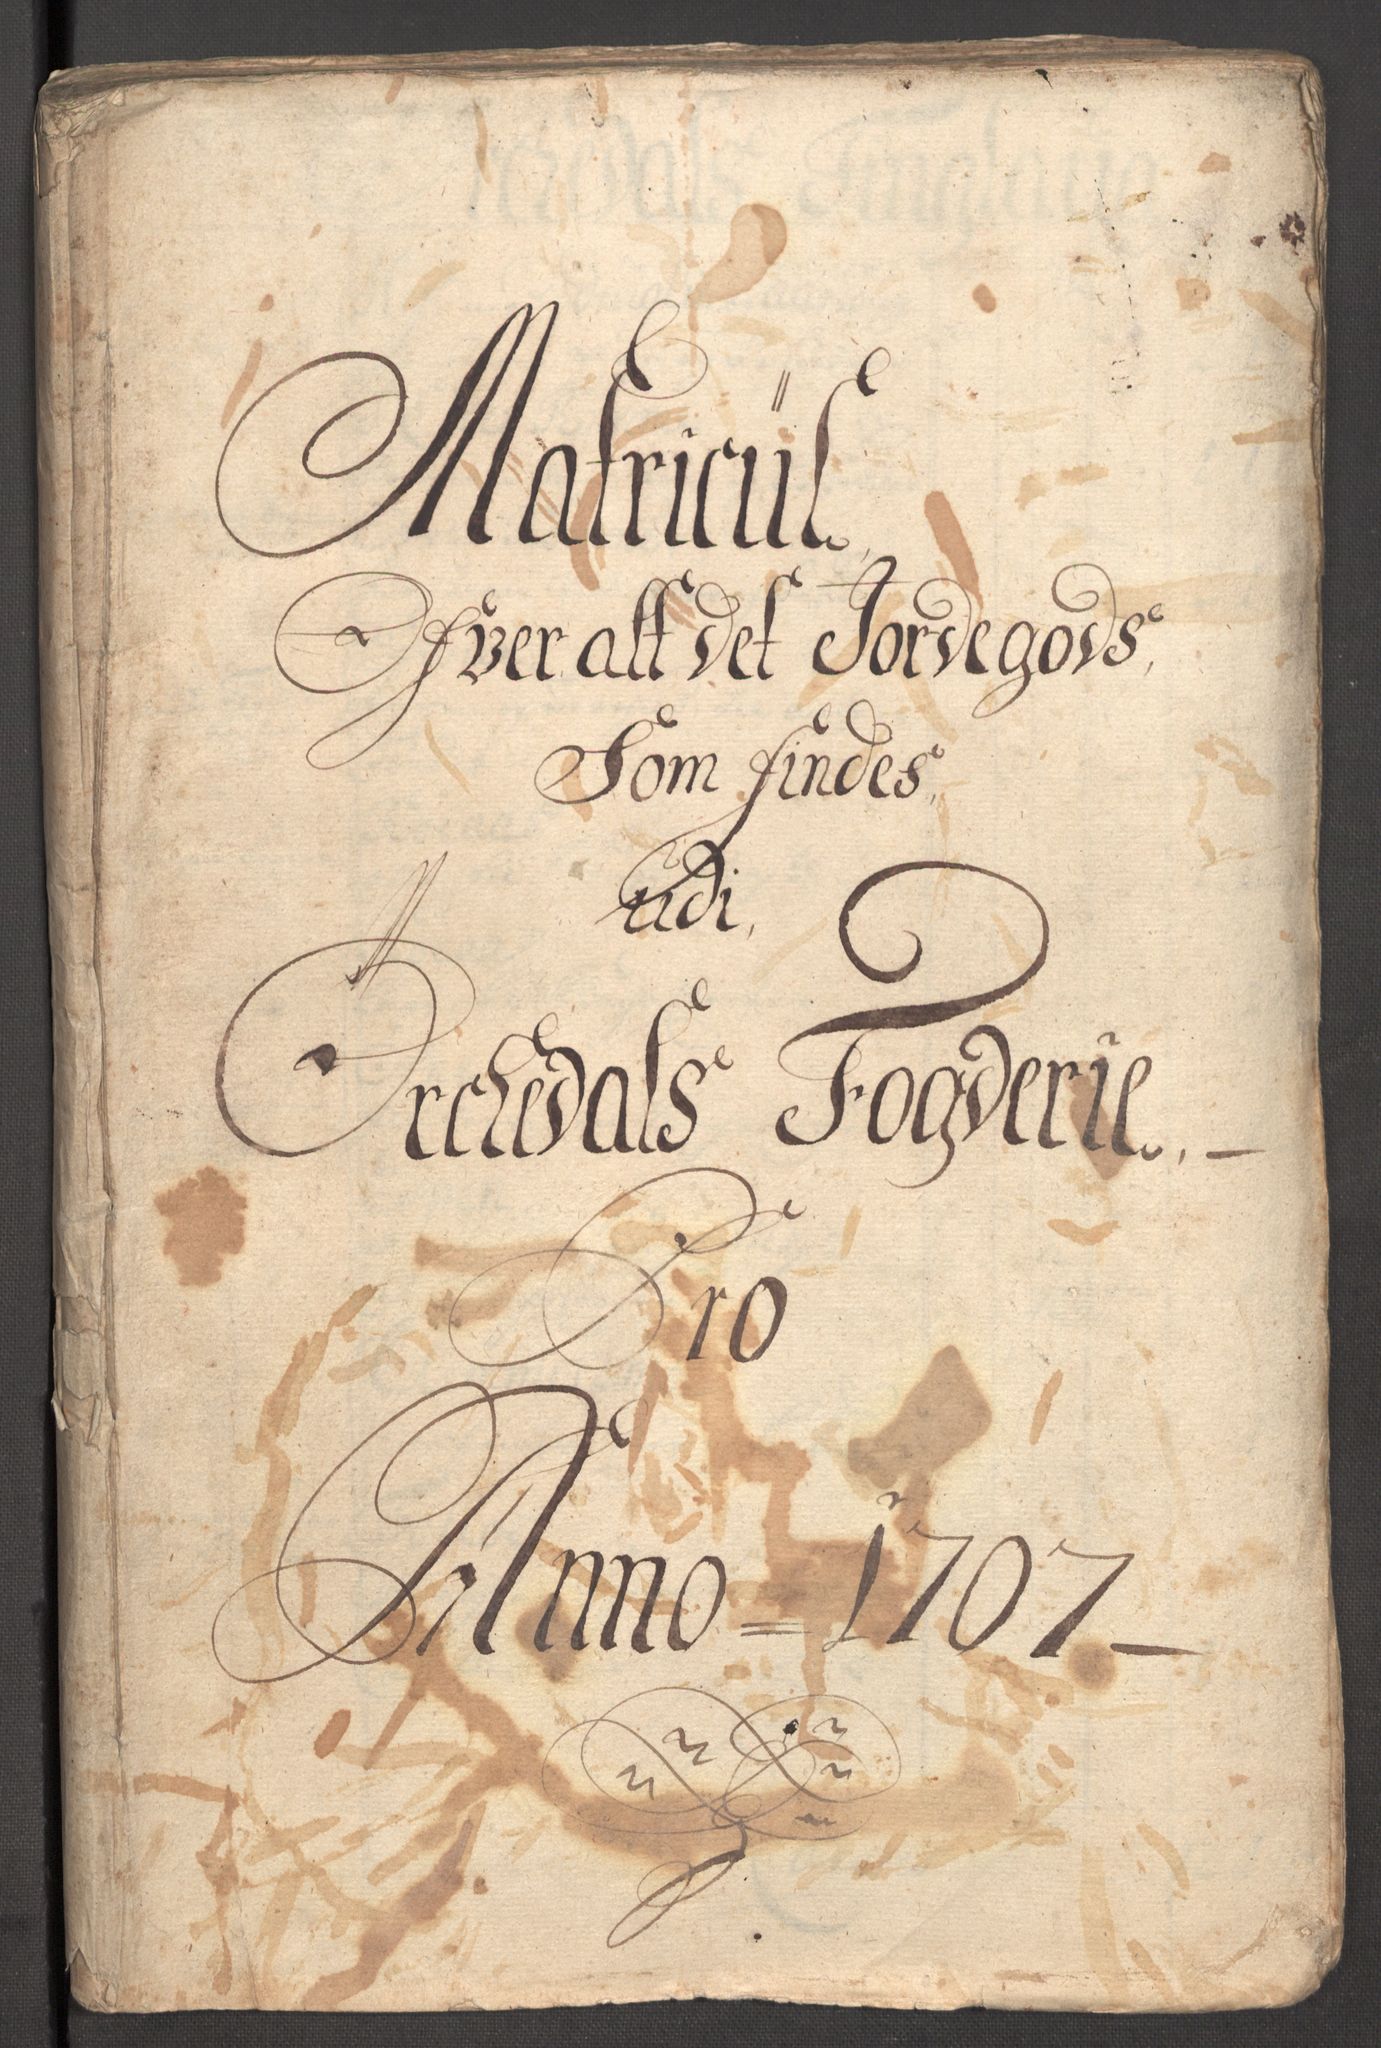 Matricul
Ofver alt det Jordegods,
Som findes,
udi,
Orchedals Fogderie, —
Pro
Anno = 1707 —